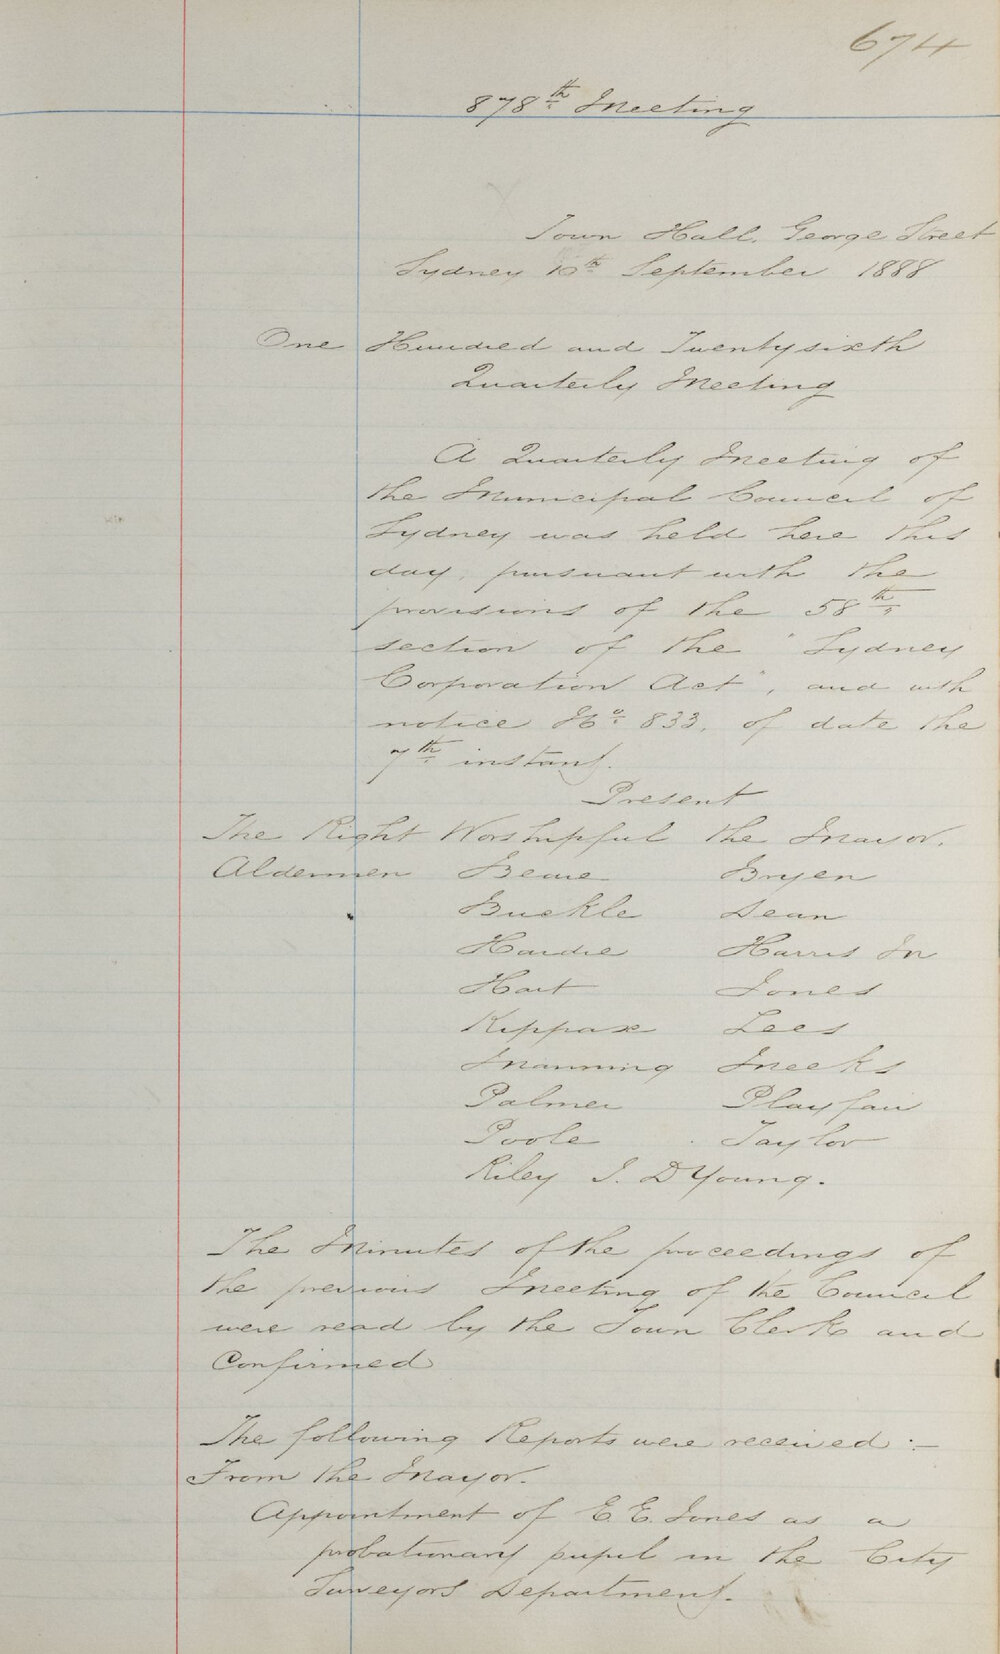 674
878th Meeting
Town Hall, George Street
Sydney 10th September 1888
One Hundred and Twentysixth
Quarterly Meeting
A Quarterly Meeting of
the Municipal Council of
Sydney was held here this
day, pursuant with the
provisions of the 58th
section of the "Sydney
Corporation Act", and with
notice No. 833, of date the
7th instant.
Present
The Right Worshipful the Mayor.
Aldermen Beare Bryen
Buckle Dean
Hardie Harris Jn
Hart Jones
Kippax Lees
Manning Meeks
Palmer Playfair
Poole Taylor
Riley J. D Young.
The Minutes of the proceedings of
the previous Meeting of the Council
were read by the Town Clerk and
Confirmed
The following Reports were received :-
From the Mayor.
Appointment of E. E. Jones as a
probationary pupil in the City
Surveyors Department.